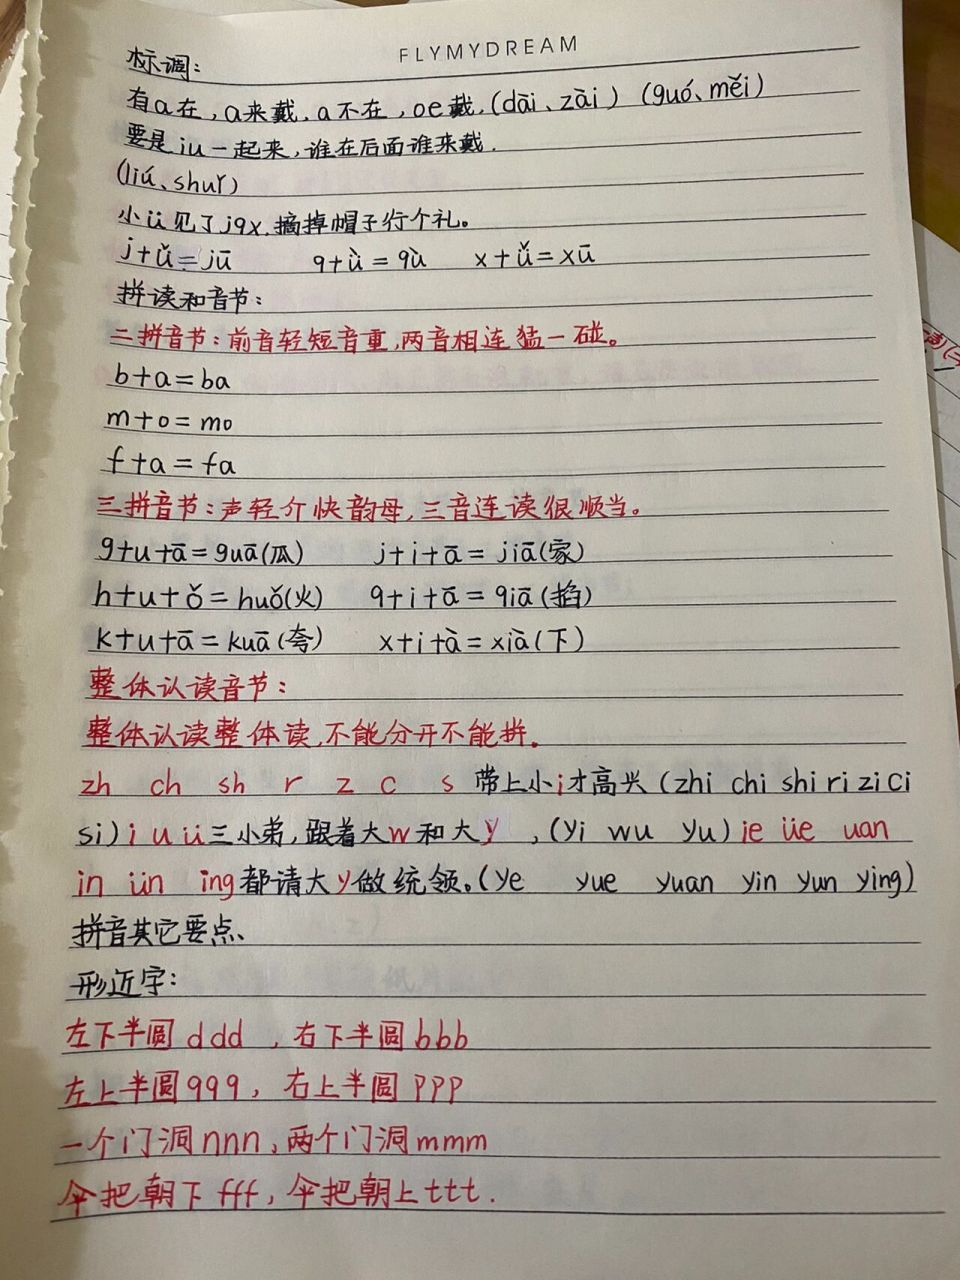 FLYMYDREAM
标调：
有a在，a来戴，a不在，oe戴，(dāi、zāi) (guó、měi)
要是iu一起来，谁在后面谁来戴．
(liú、shuǐ)
小ü见了jqx，摘掉帽子行个礼。
j+ǚ=jū q+ǜ=qù x+ǚ=xū
拼读和音节：
二拼音节：前音轻短音重，两音相连猛一碰。
b+a=ba
m+o=mo
f+a=fa
三拼音节：声轻介快韵母，三音连读很顺当。
g+u+ā=guā(瓜) j+i+ā=jiā(家)
h+u+ǒ=huǒ(火) q+i+ā=qiā(掐)
k+u+ā=kuā(夸) x+i+à=xià(下)
整体认读音节：
整体认读整体读，不能分开不能拼．
zh ch sh r z c s 带上小i才高兴(zhi chi shi ri zi ci
si) i u ü三小弟，跟着大w和大y，(yi wu yu) ie üe uan
in ün ing都请大y做统领。(ye yue yuan yin yun ying)
拼音其它要点、
形近字：
左下半圆ddd，右下半圆bbb
左上半圆qqq，右上半圆ppp
一个门洞nnn，两个门洞mmm
伞把朝下fff，伞把朝上ttt．